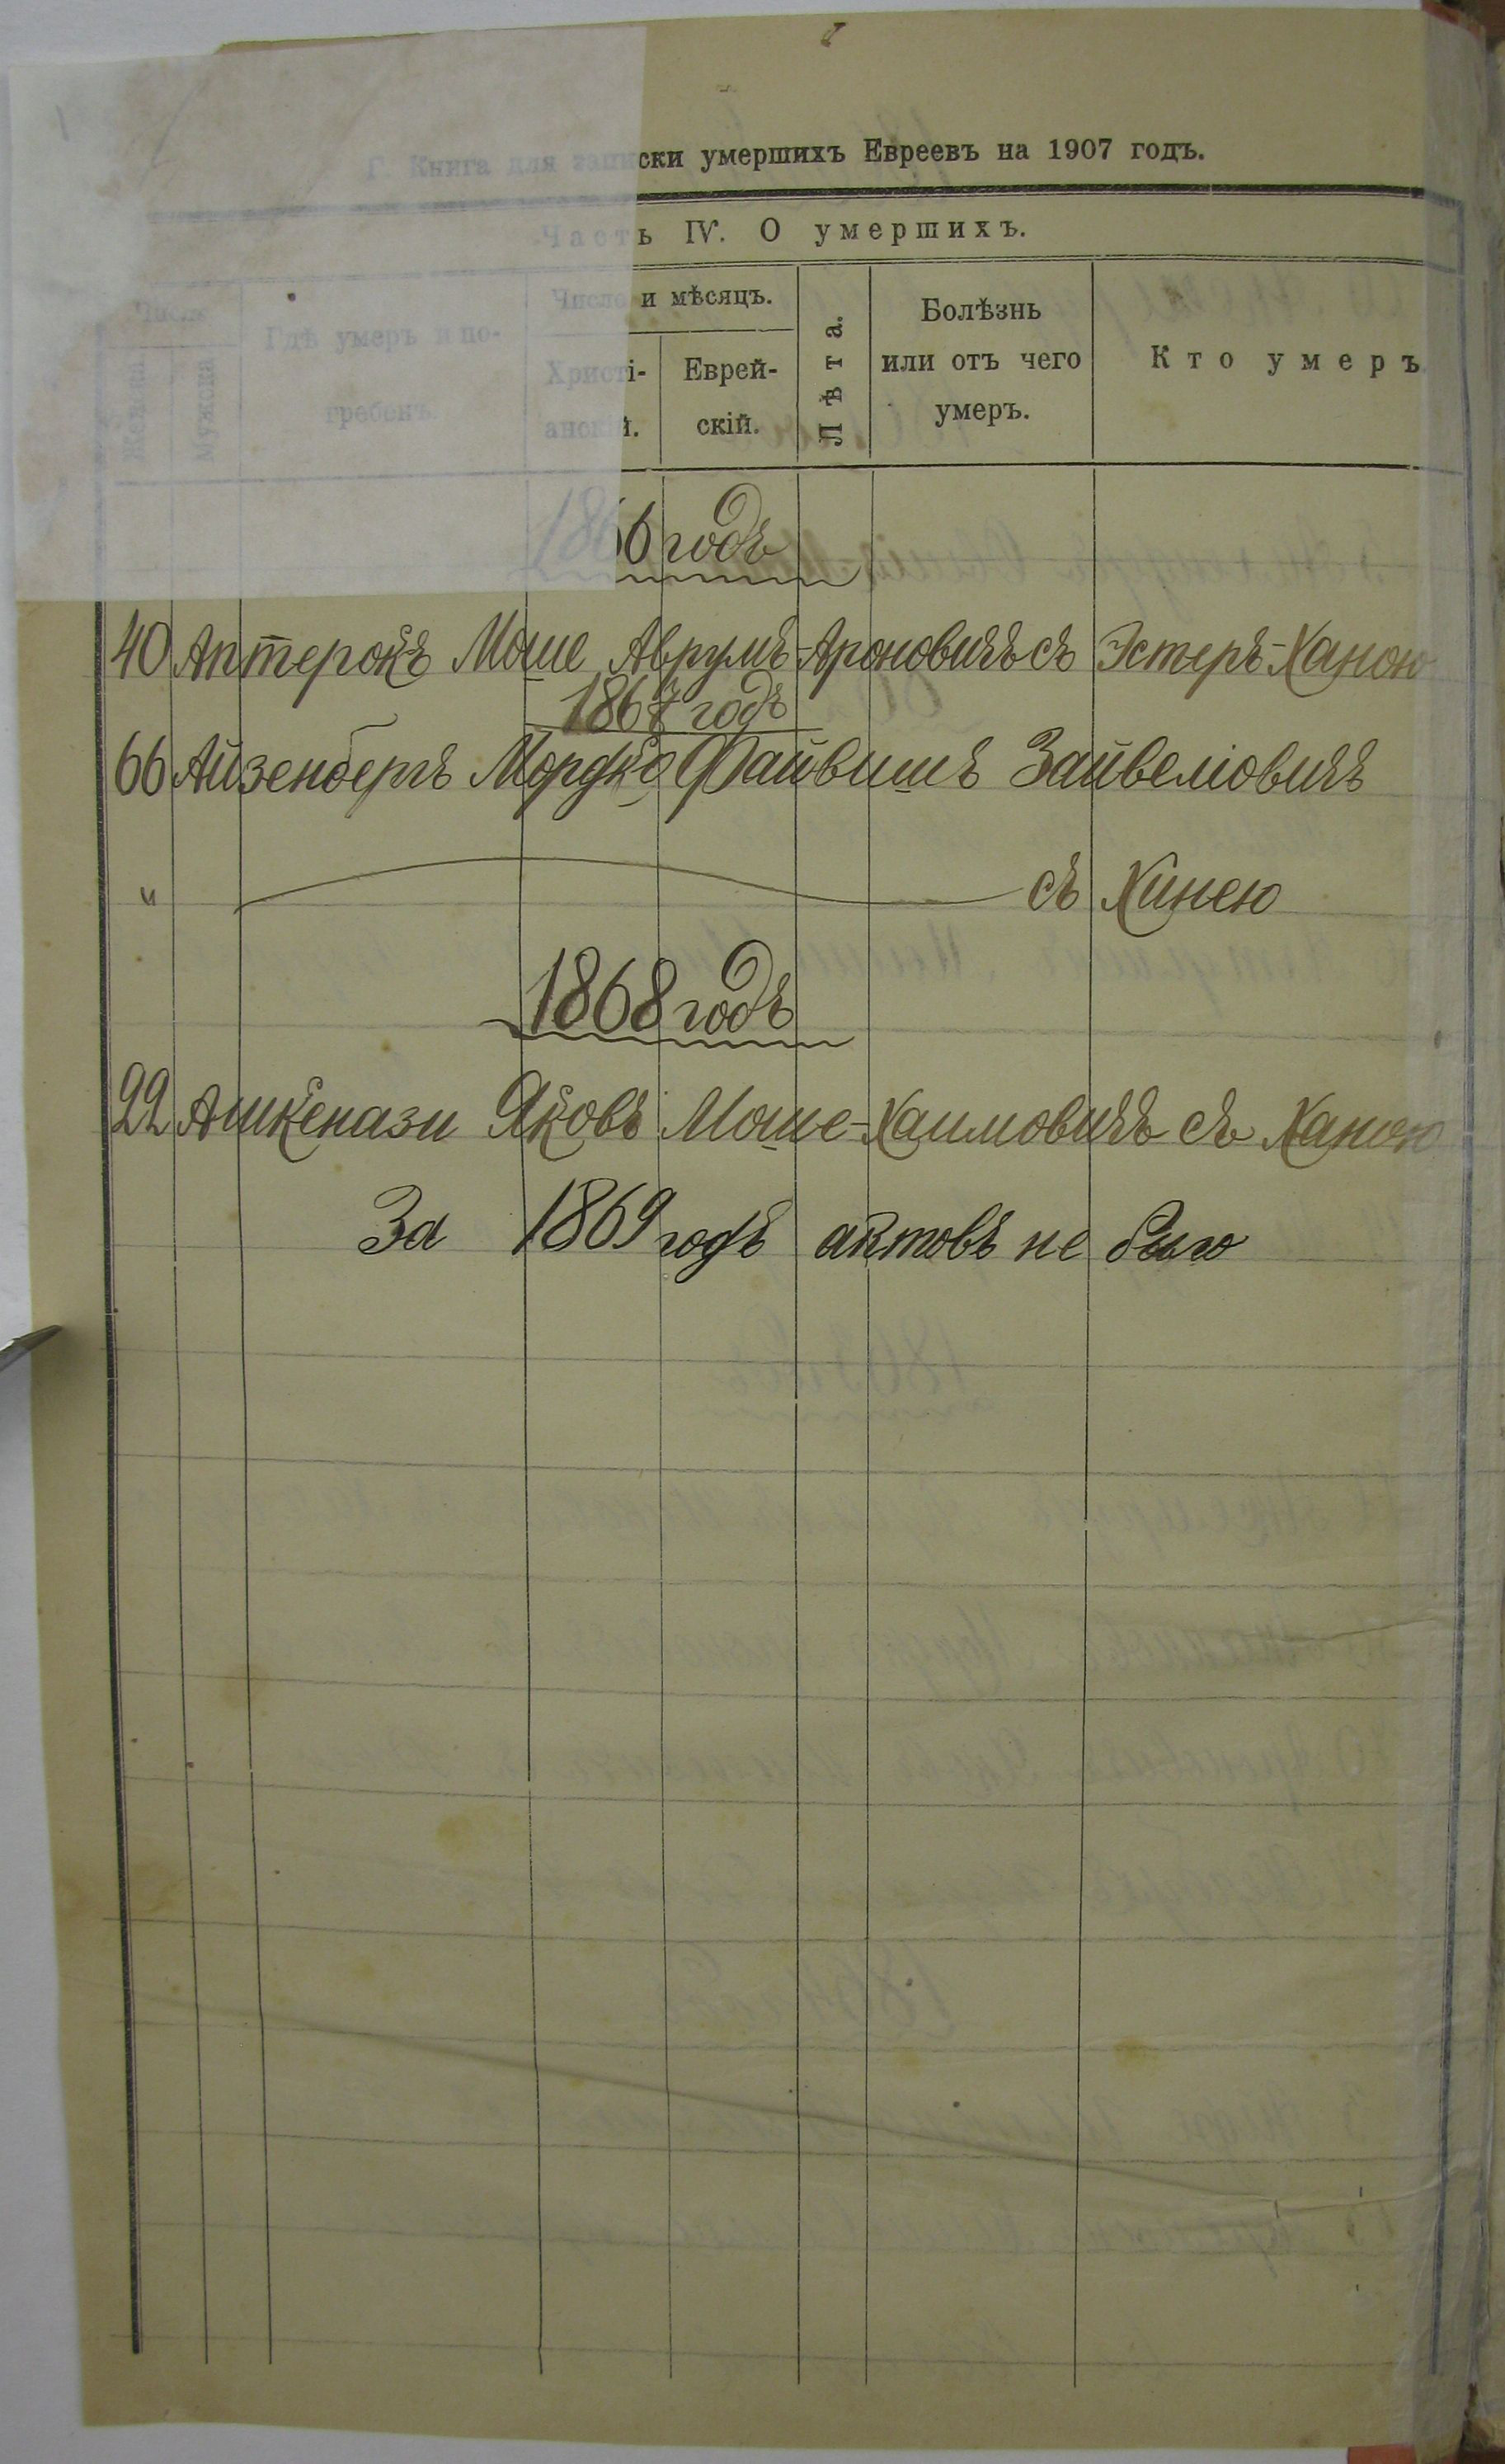 Г. Книга для записки умершихъ Евреевъ на 1907 годъ.
Часть IV. О умершихъ.
Число
Женска
Мужска
Гдѣ умеръ и по-
гребенъ.
Число и мѣсяцъ.
Христі-
анскій.
Еврей-
скій.
Лѣта.
Болѣзнь
или отъ чего
умеръ.
Кто умеръ
1866 годъ
40 Аптерокъ Моше Аврумъ-Ароновичъ съ Эстеръ-Ханою
1867 годъ
66 Айзенбергъ Мордко Файвишъ Зайвеліовичъ
" съ Хинею
1868 годъ
22 Ашкенази Яковъ Моше-Хаимовичъ съ Ханою
За 1869 годъ актовъ не было